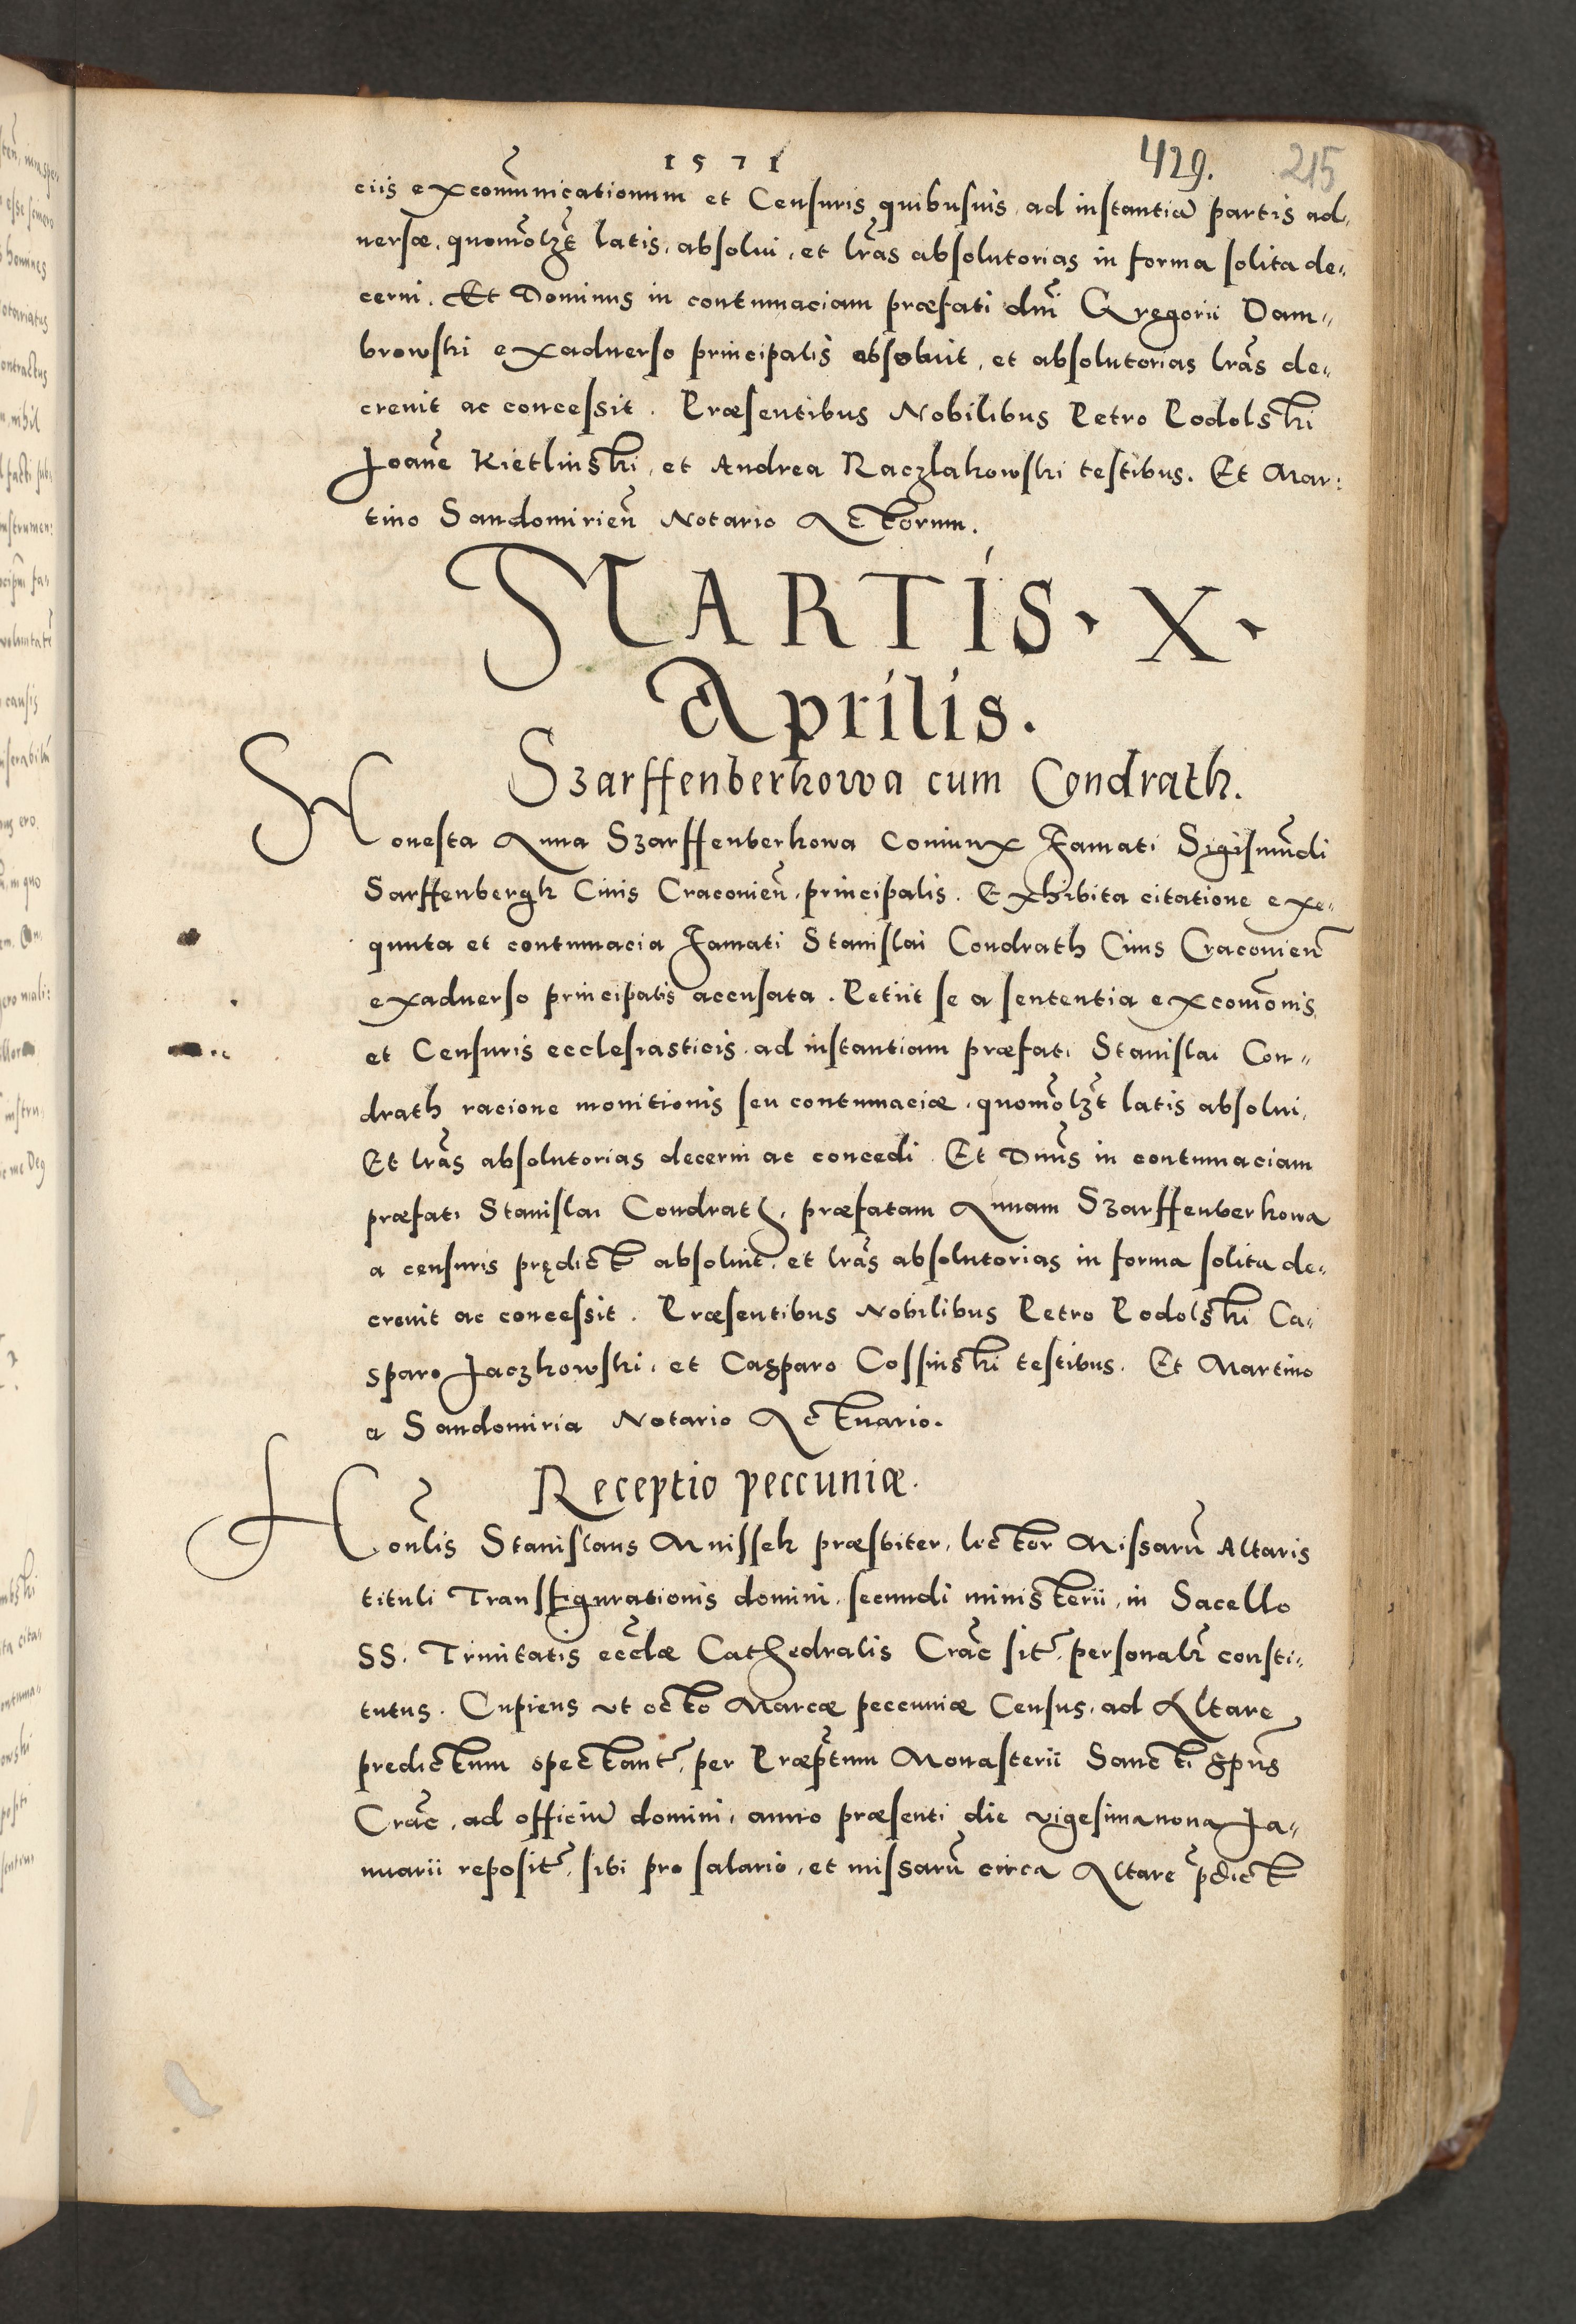 1571 429. 215
ciis excom̃unicationum et Censuris quibusuis, ad instantiã partis ad,
uersæ, quom̃olʒt̃ latis, absolui, et lr̃as absolutorias in forma solita de,,
cerni. Et Dominus in contumaciam præfati dñi Gregorii Dam,,
browski exaduerso principalis absoluit, et absolutorias lr̃as de,,
creuit ac concessit. Præsentibus Nobilibus Petro Podolski
Joañe Kietlinski, et Andrea Raczlakowski testibus. Et Mar:
tino Sandomirieñ Notario Actorum.
MARTIS. X.
Aprilis.
Szarffenberkowa cum Condrath.
Honesta Anna Szarffenberkowa Coniunx Famati Sigismũdi
Sarffenbergk Ciuis Cracouieñ, principalis. Exhibita citatione exe,,
quuta et contumacia Famati Stanislai Condrath Ciuis Cracouieñ
exaduerso principalis accusata. Petiit se a sententia excom̃onis
et Censuris ecclesiasticis, ad instantiam præfati Stanislai Con,,
drath racione monitionis seu contumaciæ, quom̃olʒt̃ latis absolui,
Et lr̃as absolutorias decerni ac concedi. Et Dñus in contumaciam
præfati Stanislai Condrath, præfatam Annam Szarffenberkowa
a censuris prędict absoluit, et lr̃as absolutorias in forma solita de,,
creuit ac concessit. Præsentibus Nobilibus Petro Podolski Ca,,
sparo Jaczkowski, et Casparo Cossinski testibus. Et Martino
a Sandomiria Notario Actuario.
Receptio peccuniæ.
Hoñlis Stanislaus Mnissek præsbiter, lector Missarũ Altaris
tituli Transfigurationis domini, secundi ministerii, in Sacello
SS. Trinitatis eccl̃æ Cathedralis Crac̃ sit̃, personalr̃ consti,,
tutus. Cupiens vt octo Marcæ peccuniæ Census, ad Altare
predictum spectant̃, per Præp̃tum Monasterii Sancti Spũs
Crac̃, ad officiũ domini, anno præsenti die vigesima nona Ja,,
nuarii reposit̃, sibi pro salario, et missarũ circa Altare p̃dict